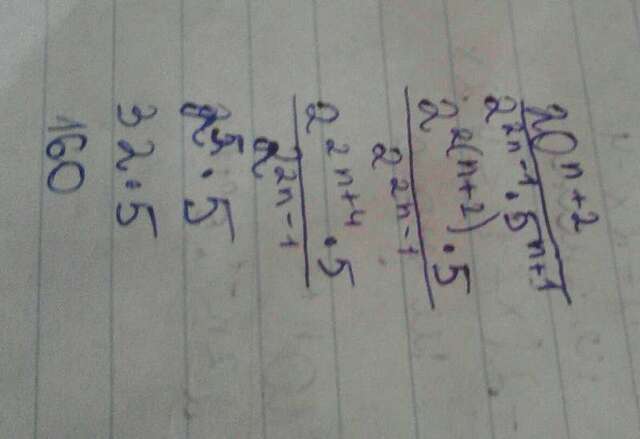 20^{n+2}
2^{2n-1} · 5^{n+1}
2^{2(n+2)} · 5
2^{2n-1}
2^{2n+4} · 5
2^{2n-1}
2^5 · 5
32 · 5
160